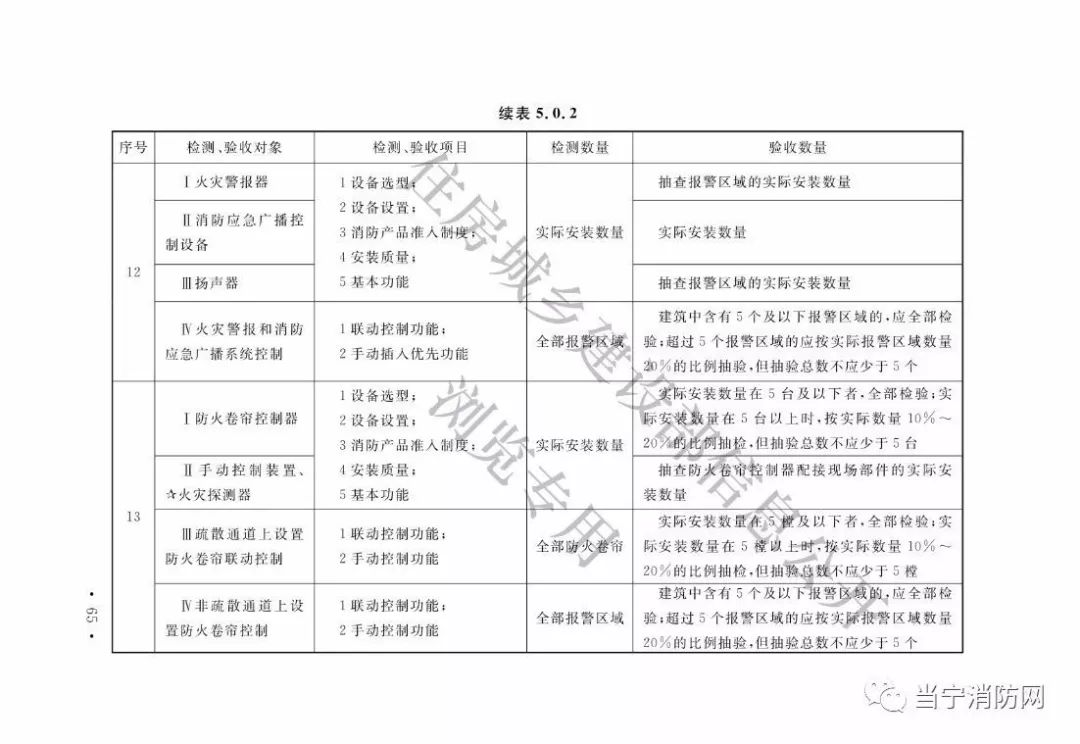 续表 5.0.2
序号 检测、验收对象 检测、验收项目 检测数量 验收数量
12
Ⅰ火灾警报器
1 设备选型;
2 设备设置;
3 消防产品准入制度;
4 安装质量;
5 基本功能
实际安装数量
抽查报警区域的实际安装数量
Ⅱ消防应急广播控
制设备
实际安装数量
Ⅲ扬声器
抽查报警区域的实际安装数量
Ⅳ火灾警报和消防
应急广播系统控制
1 联动控制功能;
2 手动插入优先功能
全部报警区域
建筑中含有 5 个及以下报警区域的,应全部检
验;超过 5 个报警区域的应按实际报警区域数量
20%的比例抽验,但抽验总数不应少于 5 个
13
Ⅰ防火卷帘控制器
1 设备选型;
2 设备设置;
3 消防产品准入制度;
4 安装质量;
5 基本功能
实际安装数量
实际安装数量在 5 台及以下者,全部检验;实
际安装数量在 5 台以上时,按实际数量 10%～
20%的比例抽检,但抽验总数不应少于 5 台
Ⅱ手动控制装置、
☆火灾探测器
抽查防火卷帘控制器配接现场部件的实际安
装数量
Ⅲ疏散通道上设置
防火卷帘联动控制
1 联动控制功能;
2 手动控制功能
全部防火卷帘
实际安装数量在 5 樘及以下者,全部检验;实
际安装数量在 5 樘以上时,按实际数量 10%～
20%的比例抽检,但抽验总数不应少于 5 樘
Ⅳ非疏散通道上设
置防火卷帘控制
1 联动控制功能;
2 手动控制功能
全部报警区域
建筑中含有 5 个及以下报警区域的,应全部检
验;超过 5 个报警区域的应按实际报警区域数量
20%的比例抽验,但抽验总数不应少于 5 个
• 65 •
住房城乡建设部信息公开
浏览专用
当宁消防网